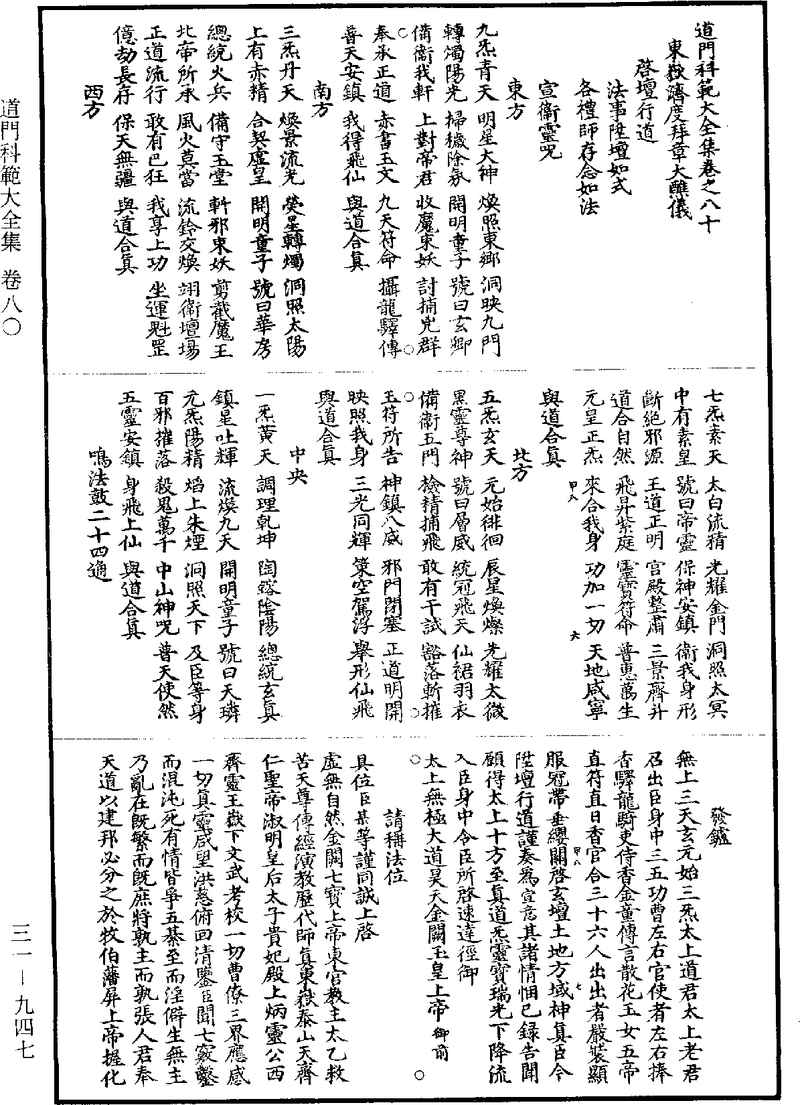 道門科範大全集卷之八十
東嶽濟度拜章大醮儀
啓壇行道
法事陞壇如式
各禮師存念如法
宣衞靈咒
東方
九炁青天　明星大神　煥照東鄉　洞映九門
轉燭陽光　掃穢除氛　開明童子　號曰玄卿
備衞我軒　上對帝君　收魔束妖　討捕兇群
奉承正道　赤書玉文　九天符命　攝龍驛傳
普天安鎮　我得飛仙　與道合真
南方
三炁丹天　煥景流光　熒星轉燭　洞照太陽
上有赤精　合契虛皇　開明童子　號曰華房
總統火兵　備守玉堂　斬邪束妖　剪截魔王
北帝所承　風火莫當　流鈴交煥　翊衞壇場
正道流行　敢有巴狂　我享上功　坐運魁罡
億劫長存　保天無疆　與道合真
西方
七炁素天　太白流精　光耀金門　洞照太冥
中有素皇　號曰帝靈　保神安鎮　衞我身形
斷絕邪源　王道正明　宮殿整肅　三景齊并
道合自然　飛昇紫庭　靈寶符命　普惠萬生
元皇正炁　來合我身　功加一切　天地咸寧
與道合真
甲八
六
北方
五炁玄天　元始徘徊　辰星煥燦　光耀太微
黑靈尊神　號曰層威　統冠飛天　仙裙羽衣
備衞五門　檢精捕飛　敢有干試　豁落斬摧
玉符所告　神鎮八威　邪門閉塞　正道明開
映照我身　三光同輝　策空駕浮　舉形仙飛
與道合真
中央
一炁黃天　調理乾坤　陶鎔陰陽　總統玄真
鎮星吐輝　流煥九天　開明童子　號曰天璘
元炁陽精　焰上朱煙　洞照天下　及臣等身
百邪摧落　殺鬼萬千　中山神咒　普天使然
五靈安鎮　身飛上仙　與道合真
鳴法鼓二十四通
發鑪
無上三天玄元始三炁太上道君太上老君
召出臣身中三五功曹左右官使者左右捧
香驛龍騎吏侍香金童傳言散花玉女五帝
直符直日香官合三十六人出出者嚴裝顯
服冠帶垂纓關啓玄壇土地方域神真臣今
甲八
七
陞壇行道謹奏為宣意其諸情悃已錄告聞
願得太上十方至真道炁靈寶瑞光下降流
入臣身中令臣所啓速達徑御
太上無極大道昊天金闕玉皇上帝御前
請稱法位
具位臣某等謹同誠上啓
虛無自然金闕七寶上帝東宮教主太乙救
苦天尊傳經演教歷代師真東嶽泰山天齊
仁聖帝淑明皇后太子貴妃殿上炳靈公西
齊靈王嶽下文武考校一切曹僚三界應感
一切真靈咸望洪慈俯回清鑒臣聞七竅鑿
而混沌死有情皆爭五綦至而淫僻生無主
乃亂在既繁而既庶將孰主而孰張人君奉
天道以建邦必分之於牧伯藩屏上帝握化
道門科範大全集　卷八〇
三一—九四七